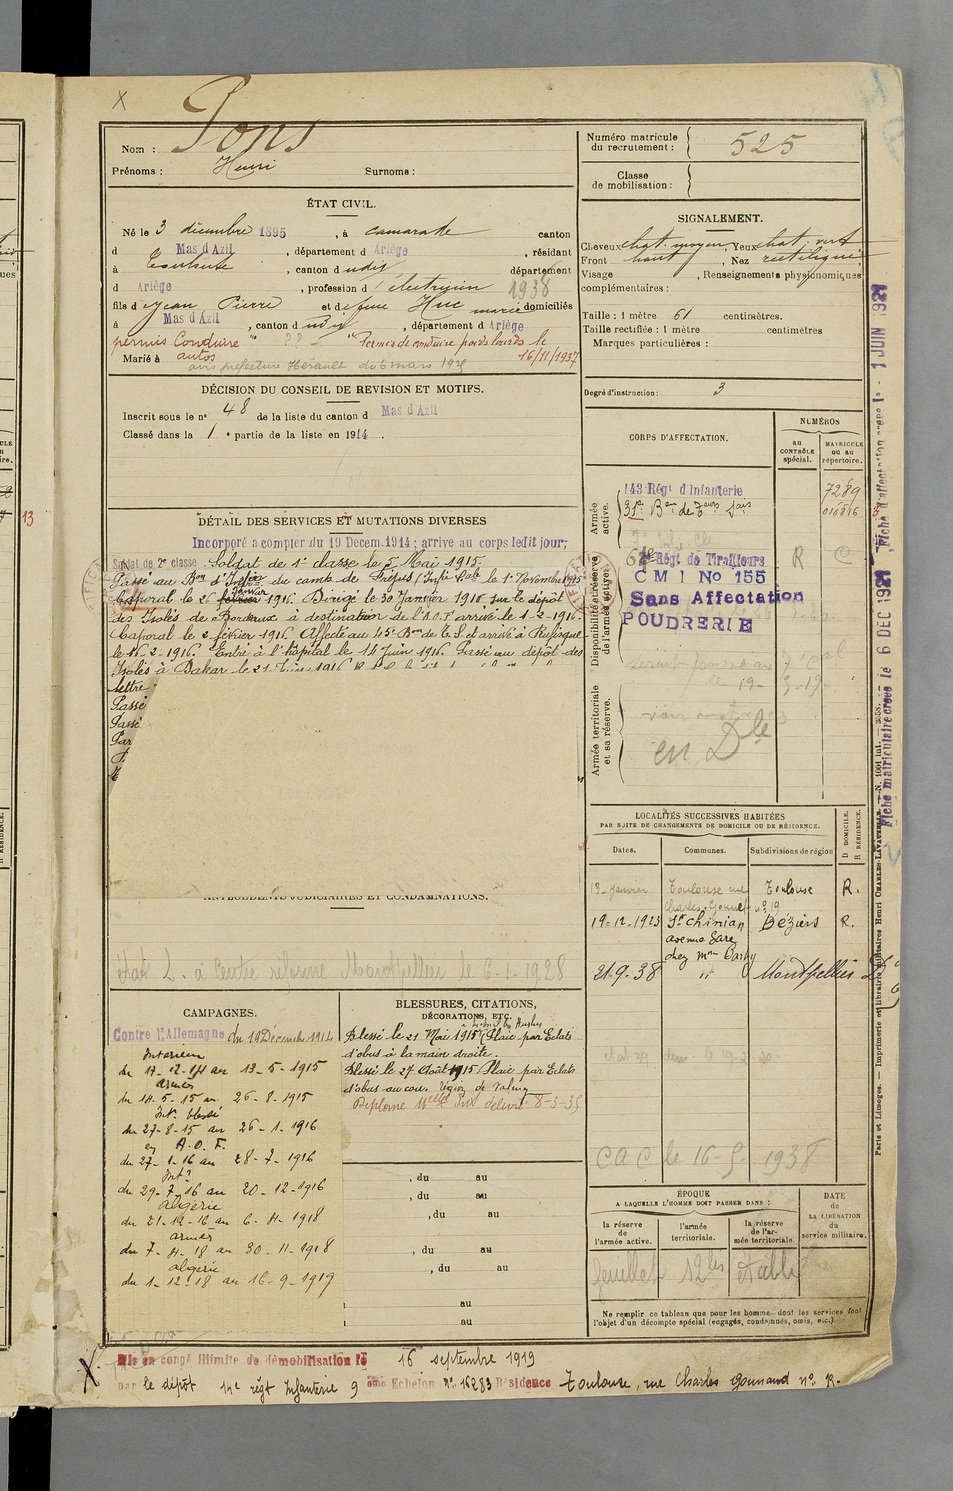 Pons
Nom :
Prénoms : Henri Surnoms :
Numéro matricule
du recrutement : 525
Classe
de mobilisation :
ÉTAT CIVIL.
Né le 3 décembre 1895, à Camarade canton
d Mas d'Azil, département d Ariège, résidant
à Toulouse, canton d udit département
d Ariège, profession d'électricien 1938
fils d Jean Pierre et de feue Huc marié domiciliés
à Mas d'Azil, canton d udit, département d Ariège
permis Conduire "Permis de conduire poids lourds le
Marié à autos 16/11/1937
avis préfecture Hérault du 6 mars
SIGNALEMENT.
Cheveux chat. moyen Yeux chat. vert
Front haut, Nez rectiligne
Visage, Renseignements physionomiques
complémentaires :
Taille : 1 mètre 61 centimètres.
Taille rectifiée : 1 mètre centimètres
Marques particulières :
Degré d'instruction : 3
DÉCISION DU CONSEIL DE REVISION ET MOTIFS.
Inscrit sous le n° 48 de la liste du canton d Mas d'Azil
Classé dans la 1e partie de la liste en 1914.
DÉTAIL DES SERVICES ET MUTATIONS DIVERSES
Incorporé a compter du 19 Decem.1914; arrive au corps ledit jour;
Soldat de 2e classe. Soldat de 1e classe le 5 Mai 1915.
Passé au Bon d'Infrie du camp de Fréjus (Infie Cale le 1e Novembre 1915
Caporal le 26 février 1916. Dirigé le 30 Janvier 1916 sur le dépôt
des Isolés de Bordeaux à destination de l'A.O.F. arrivé le 1-2-1916.
Caporal le 2 février 1916 Affecté au 45e Bon de T. S. et arrivé à Rufisque
le 16-2-1916. Entré à l'hôpital le 14 Juin 1916. Passé au dépôt des
Isolés à Dakar le 21 Juin 1916
lettre
Passé
Passé
Par
CORPS D'AFFECTATION.
NUMÉROS
au
CONTRÔLE
spécial.
MATRICULE
ou au
répertoire.
Armée
active.
143 Régt d'Infanterie 7289
31e Bon de Teurs Sais 016816
Disponibilité et réserve
de l'armée active.
Régt de Tirailleurs R C
C M I No 155
Sans Affectation
POUDRERIE
Armée territoriale
et sa réserve.
en Dle
LOCALITÉS SUCCESSIVES HABITÉES
PAR SUITE DE CHANGEMENTS DE DOMICILE OU DE RÉSIDENCE.
Dates. Communes. Subdivisions de région
D DOMICILE.
R RÉSIDENCE.
13 Janvier Toulouse rue Toulouse R.
Charles Gounod n° 19
19-12-1923 St Chinian Béziers R.
avenue Gare
chez Mme
21-9-38 " Montpellier
CAC le 16-9-1938
ANTÉCÉDENTS JUDICIAIRES ET CONDAMNATIONS.
à Centre réforme Montpellier le 6-1-1928
CAMPAGNES.
Contre l'Allemagne du 19 Décembre 1914
Intérieur
du 19-12-14 au 13-5-1915
armées
du 14-5-15 au 26-8-1915
Int. blessé
du 27-8-15 au 26-1-1916
en A.O.F.
du 27-1-16 au 28-7-1916
Intr
du 29-7-16 au 20-12-1916
algérie
du 21-12-16 au 6-4-1918
armées
du 7-4-18 au 30-11-1918
algérie
du 1-12-18 au 16-9-1919
BLESSURES, CITATIONS,
DÉCORATIONS, ETC.
Blessé le 21 Mai 1915 (Plaie par Eclats
d'obus à la main droite.
Blessé le 27 Août 1915 Plaie par Eclats
d'obus au cou. région de Valmy
Diplome délivré 8-3-35
, du au
, du au
, du au
, du au
, du au
au
au
ÉPOQUE
A LAQUELLE L'HOMME DOIT PASSER DANS :
la réserve
de
l'armée active.
l'armée
territoriale.
la réserve
de l'ar-
mée territoriale.
DATE
de
LA LIBÉRATION
du
service militaire.
feuillet 12 bis établi
Ne remplir ce tableau que pour les hommes dont les services font
l'objet d'un décompte spécial (engagés, condamnés, omis, etc.).
Mis en congé illimité de démobilisation le 16 septembre 1919
par le dépôt 14e régt Infanterie 9 ème Echelon n° 16283 Résidence Toulouse, rue Charles Gounod n° R.
Fiche d'affectation créée le - 1 JUIN 1927
Fiche matriculaire créée le 6 DEC 1927
Paris et Limoges. — Imprimerie et librairie militaires Henri CHARLES-LAVAUZELLE. — N. 1001 int.